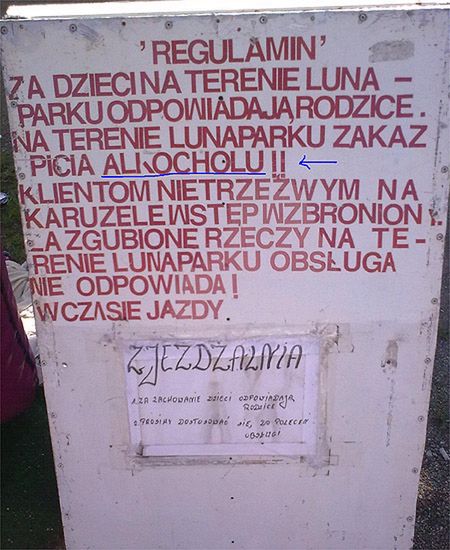 'REGULAMIN'
ZA DZIECI NA TERENIE LUNA –
PARKU ODPOWIADAJĄ RODZICE.
NA TERENIE LUNAPARKU ZAKAZ
PICIA ALKOCHOLU !!
KLIENTOM NIETRZEŹWYM NA
KARUZELE WSTĘP WZBRONION
ZA ZGUBIONE RZECZY NA TE–
RENIE LUNAPARKU OBSŁUGA
NIE ODPOWIADA!
W CZASIE JAZDY
ZJEZDZALNIA
1. ZA ZACHOWANIE DZIECI ODPOWIADAJĄ
RODZICE
2. PROSIMY DOSTOSOWAĆ SIĘ, DO POLECEŃ
OBSŁUGI